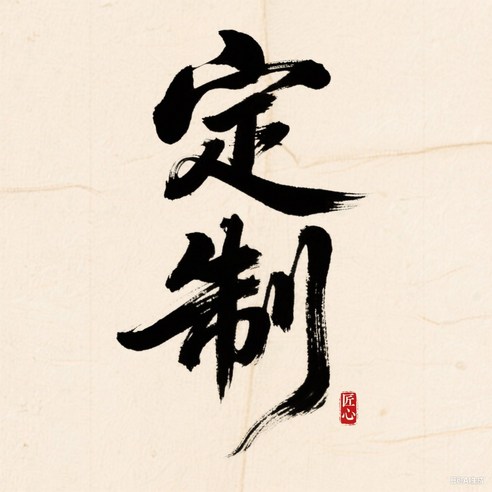 定制
匠心